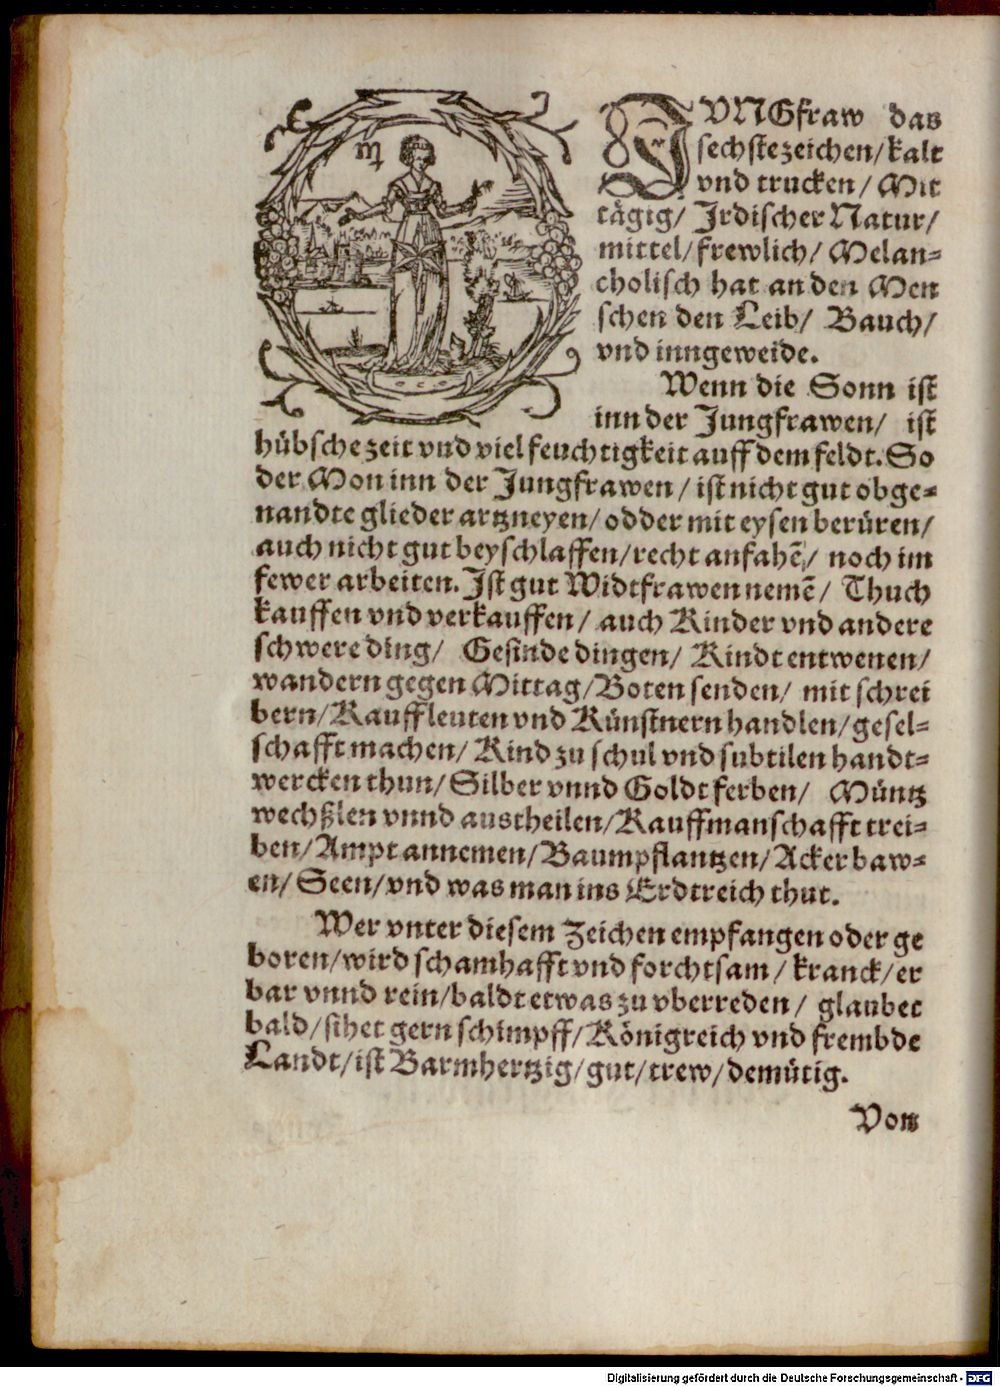 ♍
JVNGfraw das
sechste zeichen/ kalt
vnd trucken/ Mit
tägig/ Jrdischer Natur/
mittel/ frewlich/ Melan-
cholisch hat an den Men
schen den Leib/ Bauch/
vnd inngeweide.
Wenn die Sonn ist
inn der Jungfrawen/ ist
hübsche zeit vnd viel feuchtigkeit auff dem feldt. So
der Mon inn der Jungfrawen/ ist nicht gut obge-
nandte glieder artzneyen/ odder mit eysen berüren/
auch nicht gut beyschlaffen/ recht anfahē/ noch im
fewer arbeiten. Jst gut Widtfrawen nemē/ Thuch
kauffen vnd verkauffen/ auch Rinder vnd andere
schwere ding/ Gesinde dingen/ Kindt entwenen/
wandern gegen Mittag/ Boten senden/ mit schrei
bern/ Kauffleuten vnd Künstnern handlen/ gesel-
schafft machen/ Kind zu schul vnd subtilen handt-
wercken thun/ Silber vnnd Goldt ferben/ Müntz
wechßlen vnnd austheilen/ Kauffmanschafft trei-
ben/ Ampt annemen/ Baum pflantzen/ Acker baw-
en/ Seen/ vnd was man ins Erdtreich thut.
Wer vnter diesem Zeichen empfangen oder ge
boren/ wird schamhafft vnd forchtsam/ kranck/ er
bar vnnd rein/ baldt etwas zu vberreden/ glaubet
bald/ sihet gern schimpff/ Königreich vnd frembde
Landt/ ist Barmhertzig/ gut/ trew/ demütig.
Von
Digitalisierung gefördert durch die Deutsche Forschungsgemeinschaft - DFG